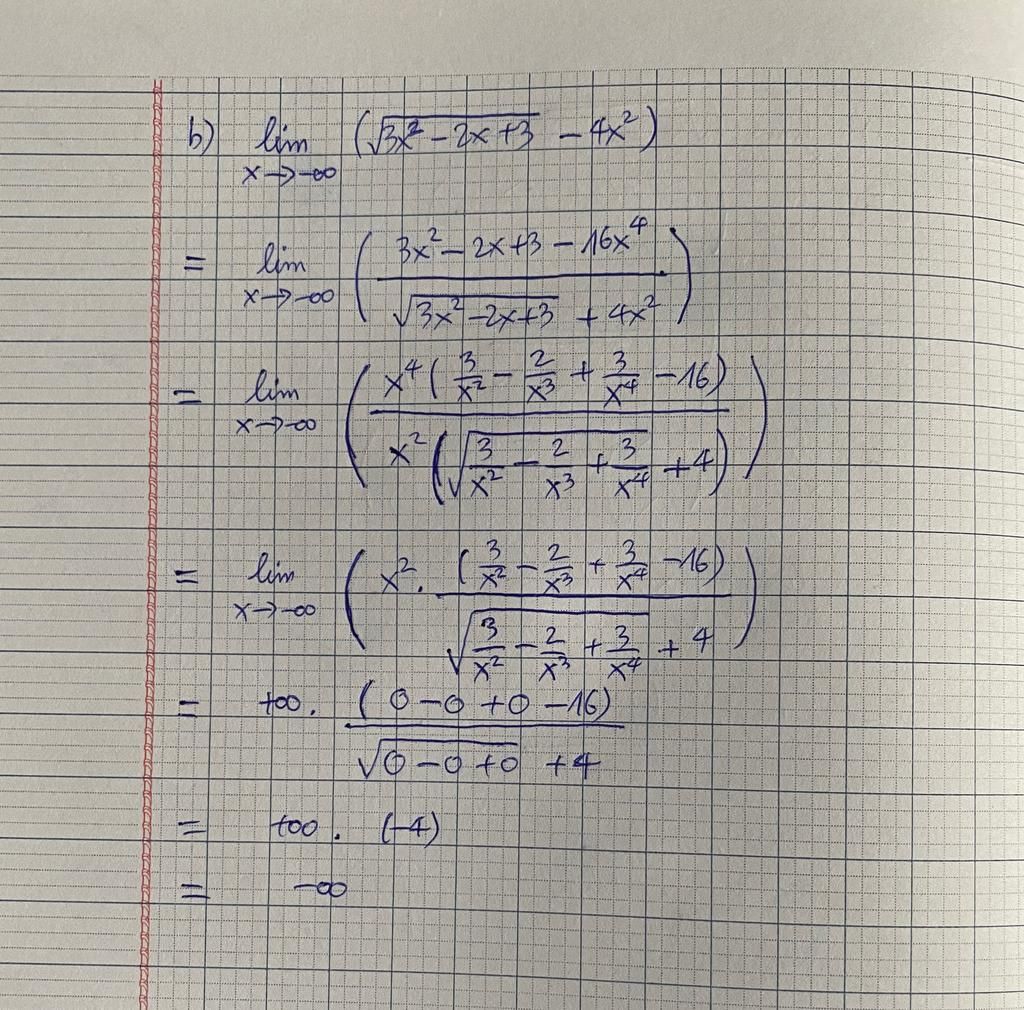 b) lim (√(3x² - 2x + 3) - 4x²)
x → -∞
= lim ( (3x² - 2x + 3 - 16x⁴) / (√(3x² - 2x + 3) + 4x²) )
x → -∞
= lim ( x⁴ (3/x² - 2/x³ + 3/x⁴ - 16) / x² (√(3/x² - 2/x³ + 3/x⁴) + 4) )
x → -∞
= lim ( x² . (3/x² - 2/x³ + 3/x⁴ - 16) / (√(3/x² - 2/x³ + 3/x⁴) + 4) )
x → -∞
= +∞ . (0 - 0 + 0 - 16) / (√(0 - 0 + 0) + 4)
= +∞ . (-4)
= -∞